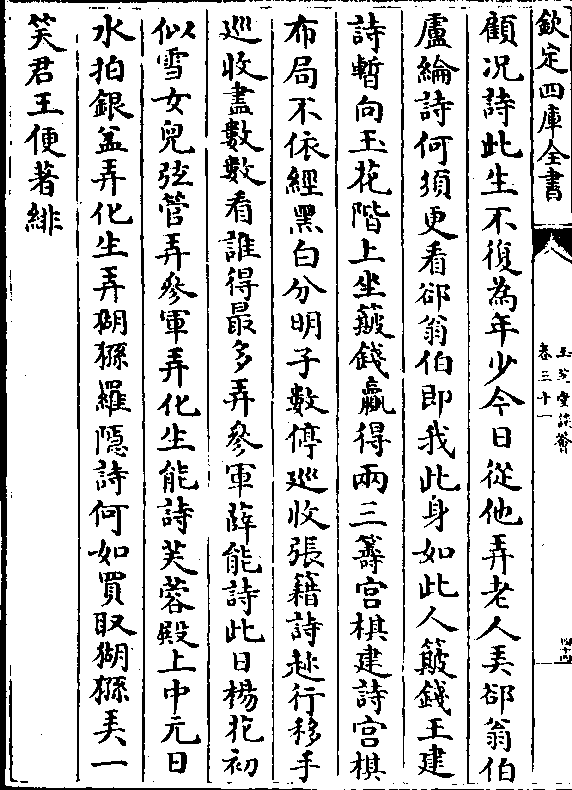 欽定四庫全書
玉芝堂談薈
卷三十一
四十四
顧况詩此生不復為年少今日從他弄老人弄郤翁伯
盧綸詩何須更看郤翁伯即我此身如此人簸錢王建
詩暫向玉花階上坐簸錢贏得兩三籌宫棋建詩宫棋
布局不依經黑白分明子數停巡收張籍詩赴行移手
巡收盡數數看誰得最多弄參軍薛能詩此日楊花初
似雪女兒弦管弄參軍弄化生能詩芙蓉殿上中元日
水拍銀盆弄化生弄猢猻羅隠詩何如買取猢猻弄一
笑君王便著緋